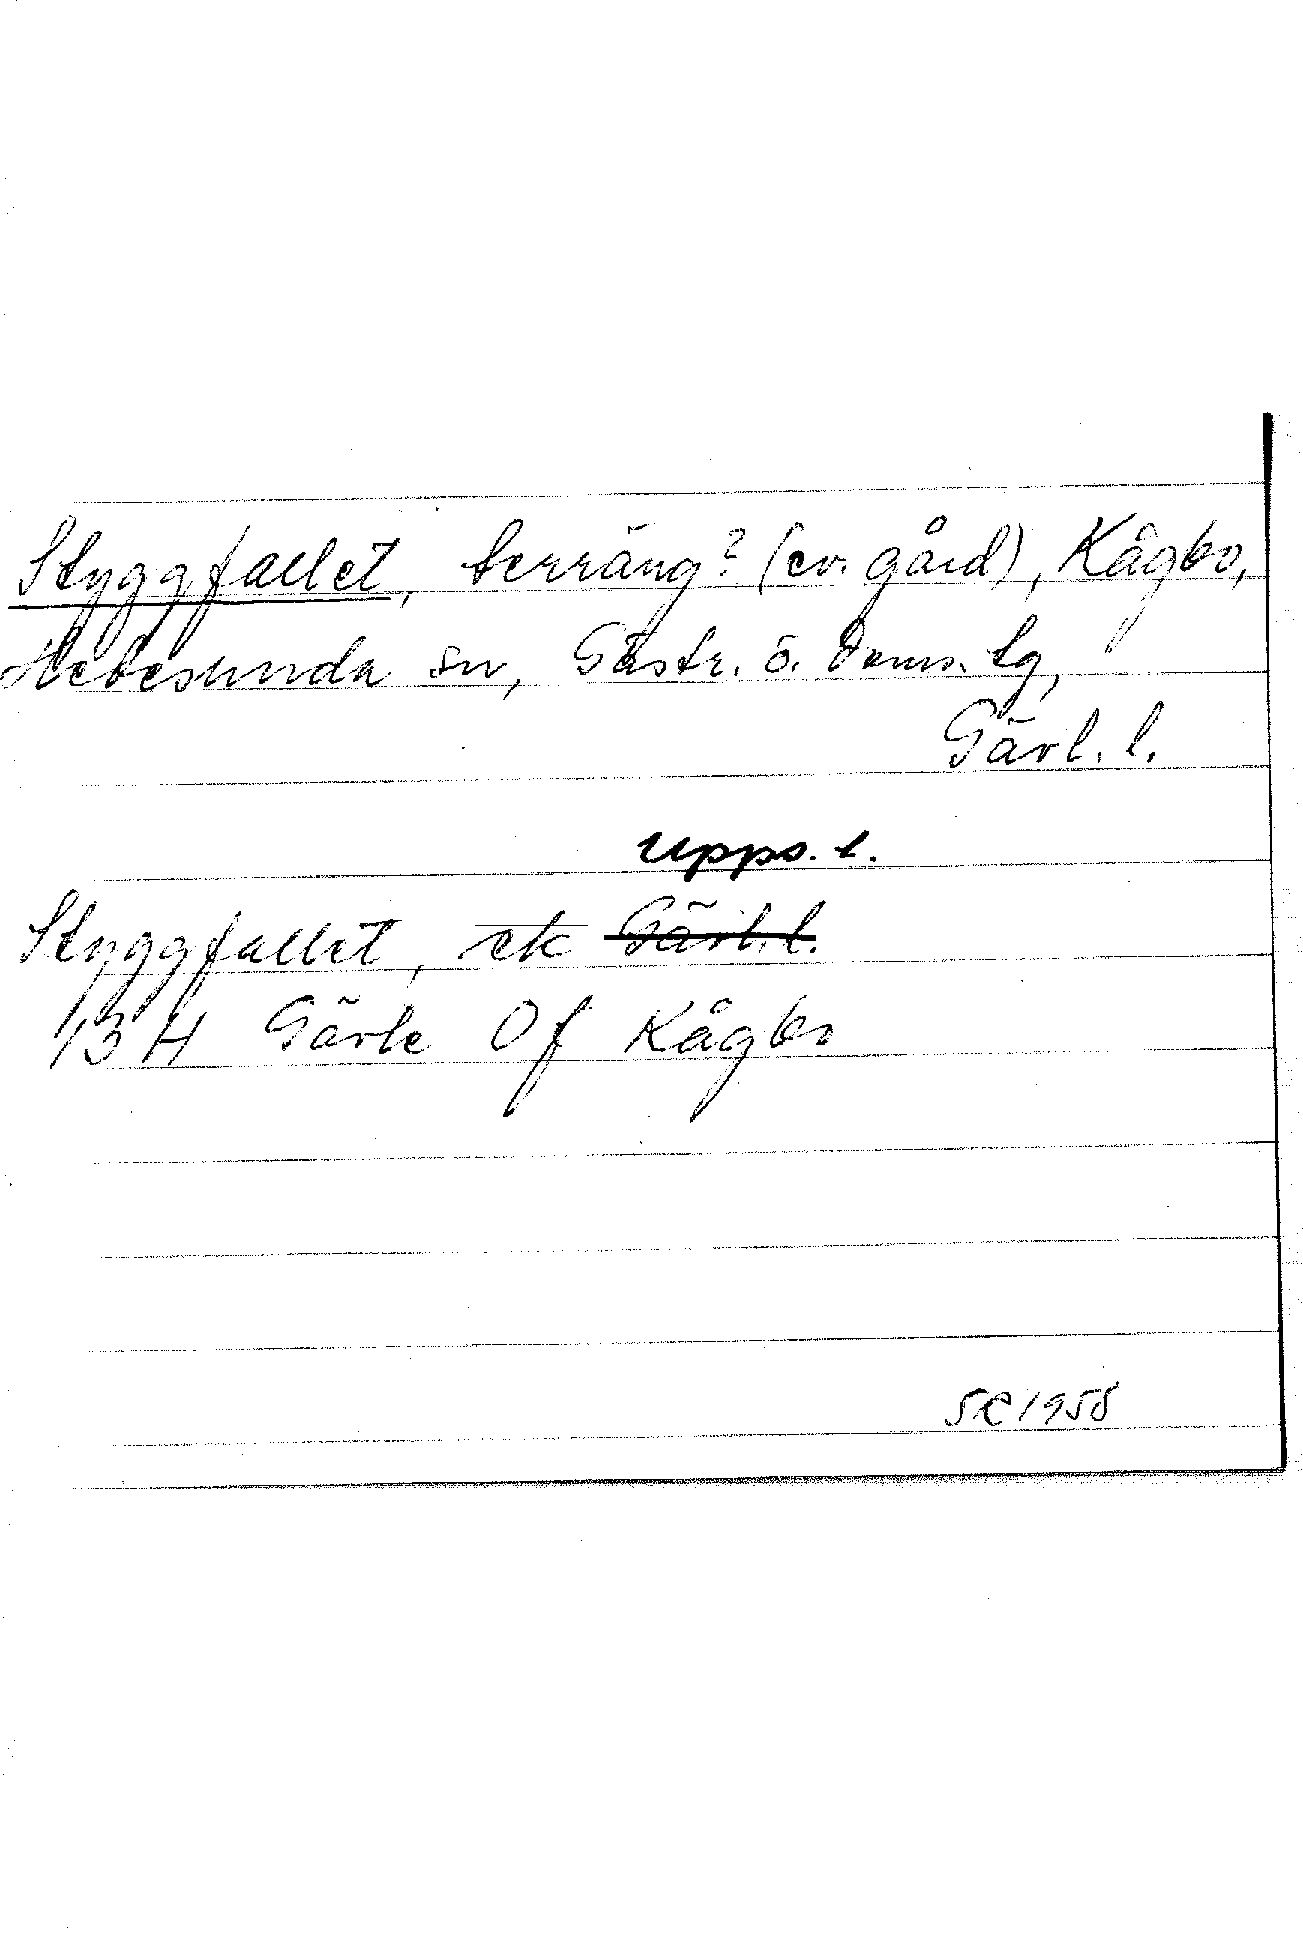 Styggfallet, terräng? (ev. gård), Kågbo,
Hedesunda sn, Gästr. ö. doms. tg,
Gävl. l.
Upps. l.
Styggfallet, ek Gävl. l.
13 H Gävle 0f Kågbo
SR 1958